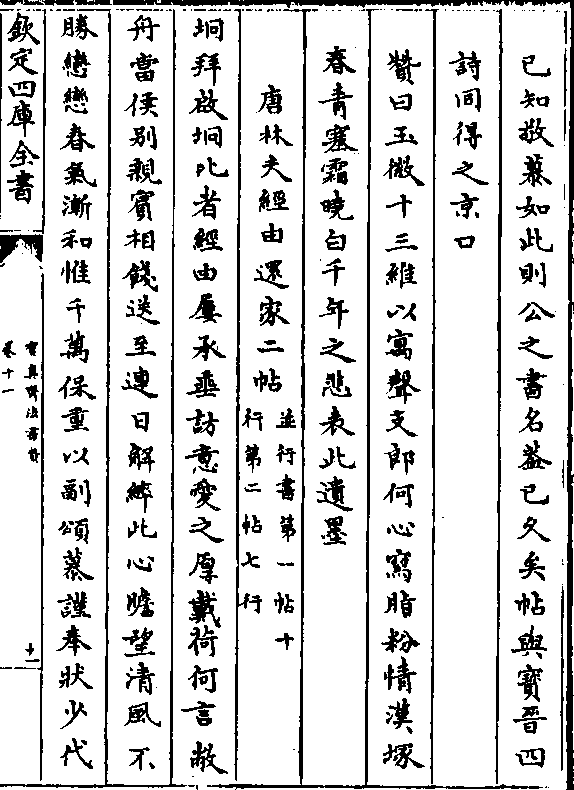 已知敬慕如此則公之書名葢已久矣帖與寳晉四
詩同得之京口
贊曰玉徽十三維以寓聲支郎何心寫脂粉情漢塚
春青塞霜曉白千年之悲表此遺墨
唐林夫經由還家二帖
並行書第一帖十
行第二帖七行
坰拜啟坰比者經由屢承垂訪意愛之厚戴荷何言敝
舟當俟别親賓相餞送至連日解縴此心瞻望清風不
勝戀戀春氣漸和惟千萬保重以副頌慕謹奉狀少代
欽定四庫全書
寳真齋法書賛
卷十一
十一